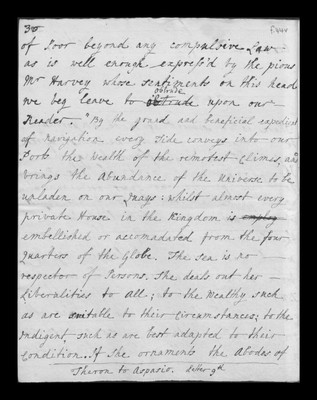 30
of Poor beyond any compulsive Law
as is well enough express'd by the pious
Mr Harvey whose sentiments on this head
obtrude
we beg leave to obtrude upon our
Reader. "By the grand and beneficial expedient
of navigation every Tide conveys into our
Ports the wealth of the remotest Climes, and
brings the abundance of the Universe to be
upladen on our Quays: whilst almost every
private House in the Kingdom is
embellished or accomadated from the four
Quarters of the Globe. The Sea is no
respector of Persons. She deals out her
Liberalities to all; to the Wealthy such
as are suitable to their Circumstances; to the
Indigent, such as are best adapted to their
Condition. If she ornaments the Abodes of
Theron to Aspasio. Letter 9th